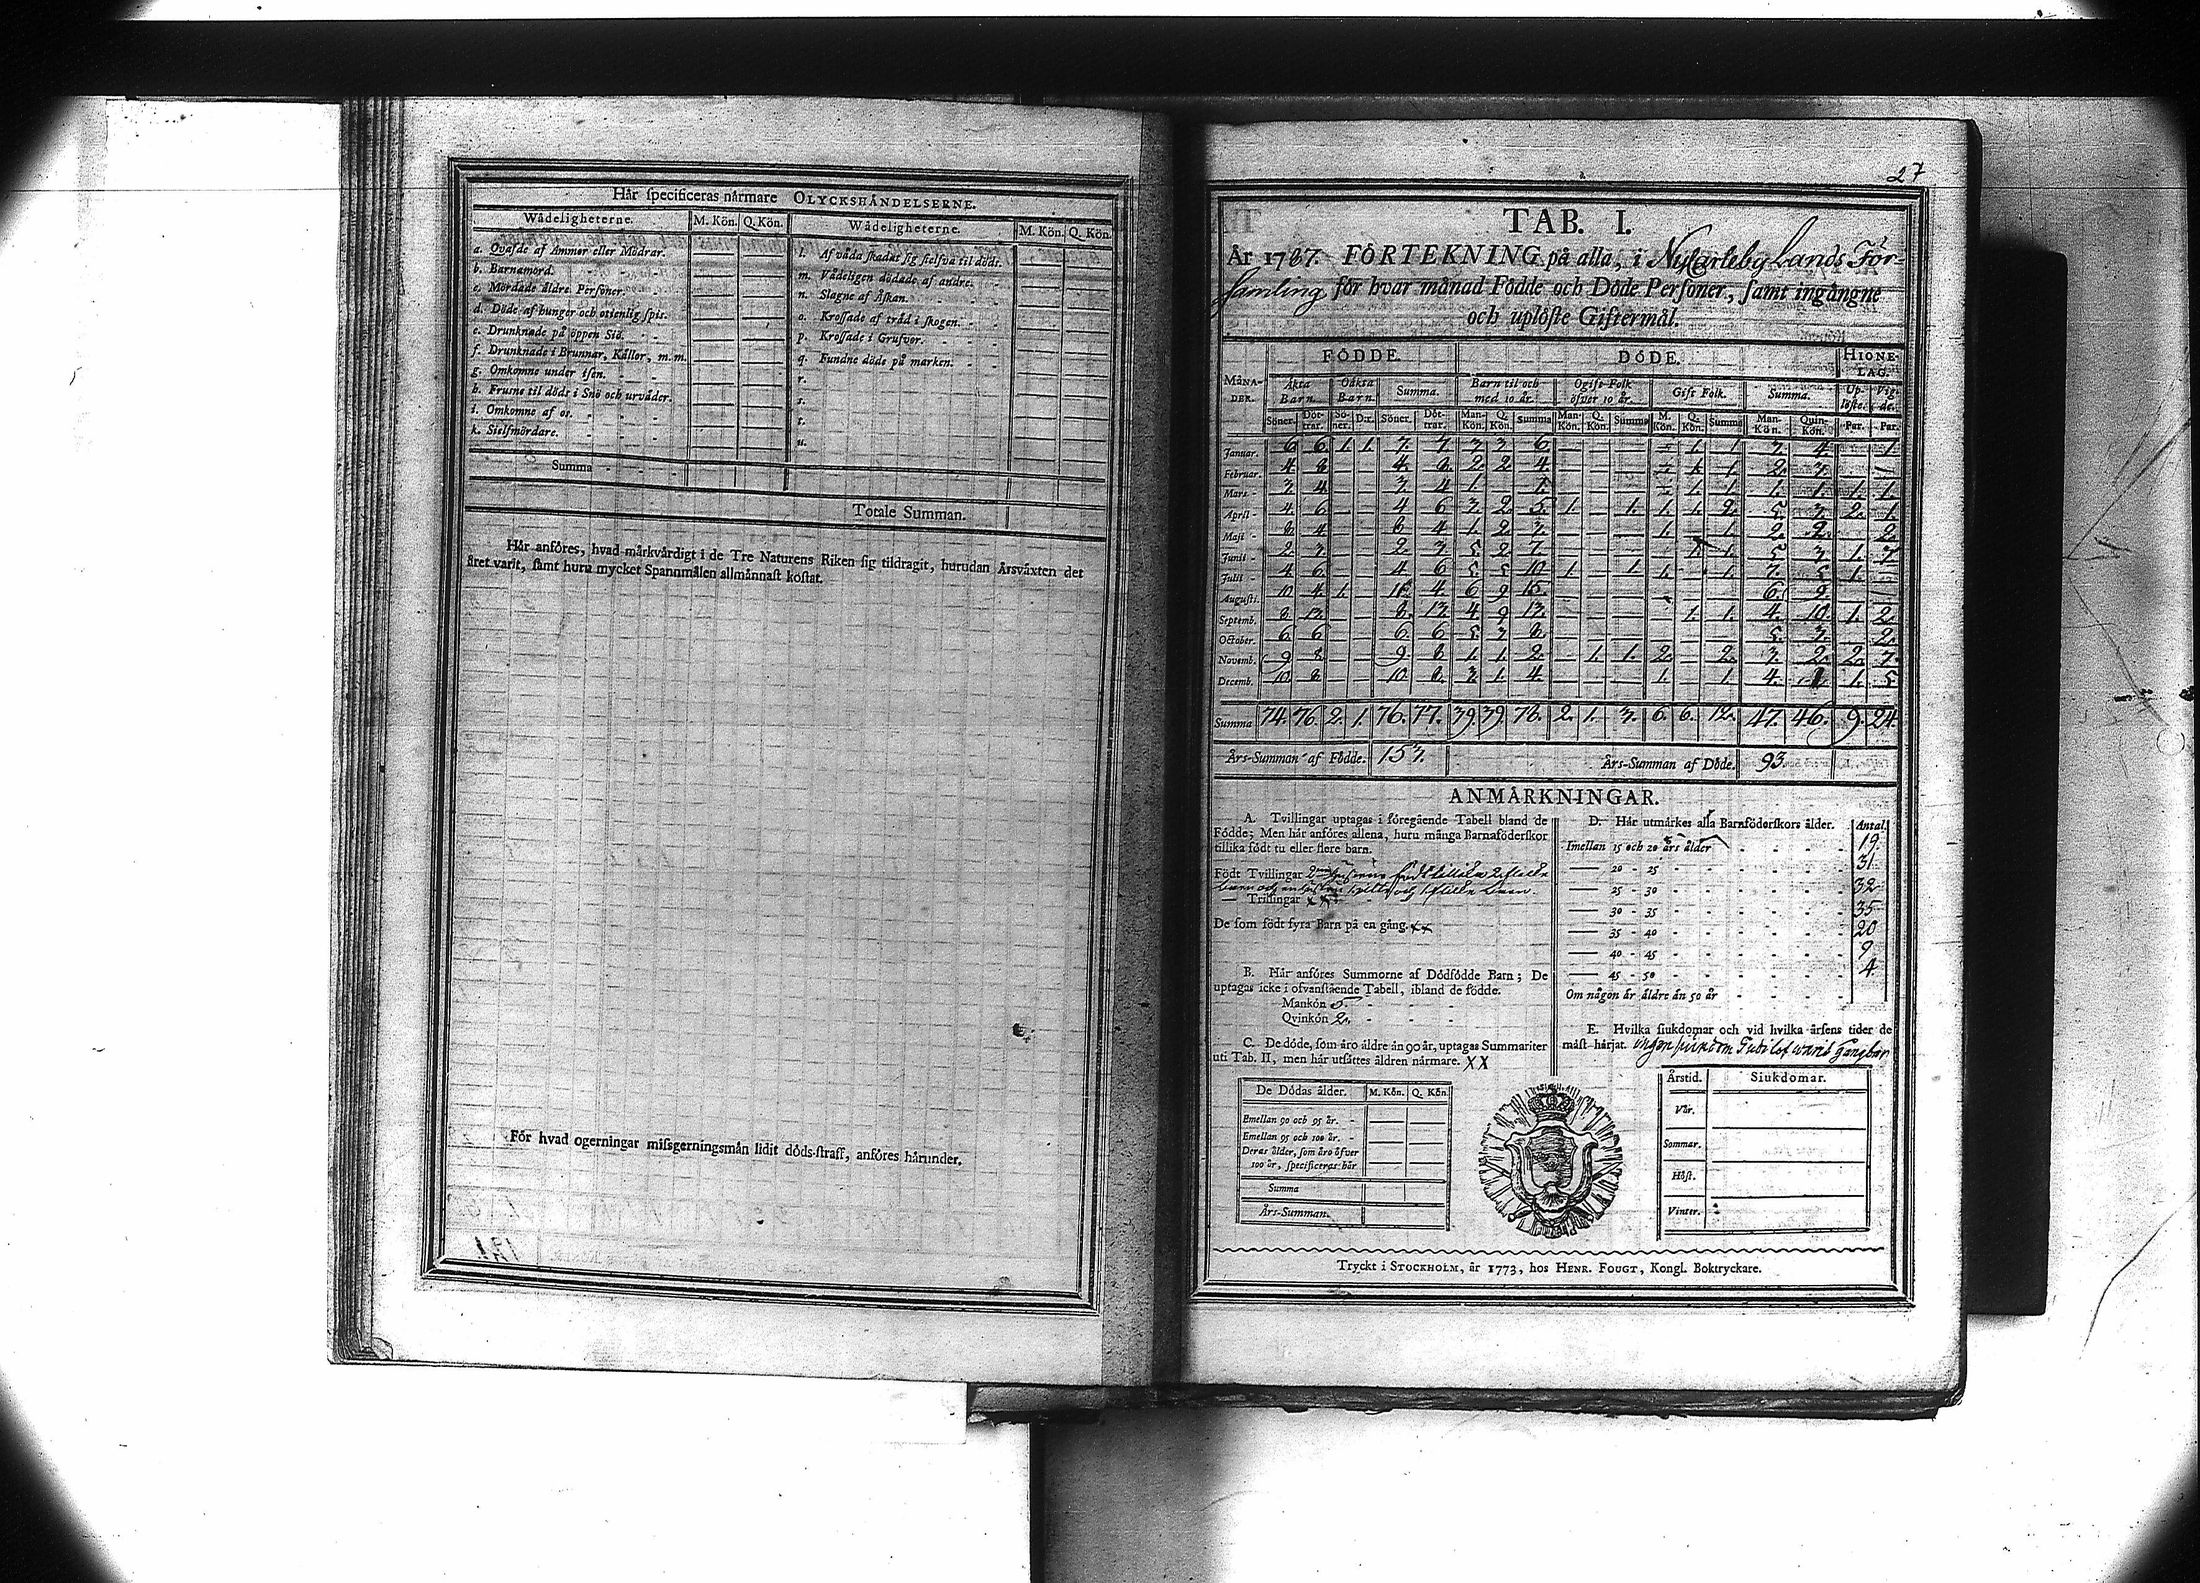 Här specificeras närmare OLYCKSHÄNDELSERNE.
Wådeligheterne. M. Kön. Q. Kön. Wådeligheterne. M. Kön. Q. Kön.
a. Qvafde af Ammor eller Mödrar.
b. Barnamord.
c. Mördade äldre Personer.
d. Döde af hunger och otienlig spis.
e. Drunknade på öppen Siö.
f. Drunknade i Brunnar, Källor, m. m.
g. Omkomne under isen.
h. Frusne til döds i Snö och urväder.
i. Omkomne af os.
k. Sielfmördare.
Summa
l. Af våda skadat sig sielfva til döds.
m. Vådeligen dödade af andre.
n. Slagne af Åskan.
o. Krossade af träd i skogen.
p. Krossade i Grufvor.
q. Fundne döde på marken.
r.
s.
t.
u.
Totale Summan.
Här anföres, hvad märkvärdigt i de Tre Naturens Riken sig tildragit, hurudan Årsväxten det
året varit, samt huru mycket Spannmålen allmännast kostat.
För hvad ogerningar missgerningsmän lidit döds-straff, anföres härunder.
27
TAB. I.
År 1787. FÖRTEKNING på alla, i Nycarleby Lands För-
samling för hvar månad Födde och Döde Personer, samt ingångne
och uplöste Giftermål.
FÖDDE. DÖDE. HIONE-LAG.
MÅNA-DER. Äkta Barn. Oäkta Barn. Summa. Barn til och med 10 år. Ogift Folk öfver 10 år. Gift Folk. Summa. Up-löste. Vig-de.
Söner. Döt-trar. Sö-ner. D:r. Söner. Döt-trar. Man-Kön. Q. Kön. Summa Man-Kön. Q. Kön. Summa M. Kön. Q. Kön. Summa Man-Kön. Quin-Kön. Par. Par.
Januar. 6 6 1. 1. 7. 7 3 3 6 — — — — 1. 1 7. 4. 1.
Februar. 4 8 — — 4. 8. 2. 2 4 — — — — 1. 1. 2. 3. —
Mart. 3 4 — — 3. 4 1 1. — — — — 1. 1. 1. 1. 1. 1.
April 4 6 — — 4 6 3. 2 5. 1. — 1. 1. 1. 2. 5 3. 2. 1.
Maji 8 4 — — 8 4 1. 2 3. — — — 1. — 1. 2. 2. 2.
Junii 2 3 — — 2. 3. 5 2 7. — — — — 1. 1. 5 3. 1. 7.
Julii 4 6 — — 4 6 5 5 10 1. — 1. 1. — 1. 7. 5 1. —
Augusti. 10 4 1. — 11. 4 6 9 15. — — — 6 9. —
Septemb. 8 13. — — 8. 13. 4 9 13. — — — — 1. 1. 4. 10. 1. 2.
October. 6 6 — — 6. 6 5. 3 8. — — — 5. 3. 2.
Novemb. 9 8 — — 9. 8 1. 1. 2. — 1. 1. 2. — 2. 3. 2. 2. 7.
Decemb. 10 8 — — 10. 8. 3 1. 4. — — — 1. — 1. 4. 1. 1. 5
Summa 74. 76. 2. 1. 76. 77. 39. 39. 78. 2. 1. 3. 6. 6. 12. 47. 46. 9. 24.
Års-Summan af Födde. 153. Års-Summan af Döde. 93.
ANMÄRKNINGAR.
A. Tvillingar uptagas i föregående Tabell bland de
Födde; Men här anföres allena, huru många Barnaföderskor
tillika födt tu eller flere barn.
Födt Tvillingar
— Trillingar xx
De som födt fyra Barn på en gång. xx
B. Här anföres Summorne af Dödfödde Barn; De
uptagas icke i ofvanstående Tabell, ibland de födde.
Mankön 5.
Qvinkön 2.
C. De döde, som äro äldre än 90 år, uptagas Summariter
uti Tab. II, men här utsättes åldren närmare. XX
De Dödas ålder. M. Kön. Q. Kön.
Emellan 90 och 95 år.
Emellan 95 och 100 år.
Deras ålder, som äro öfver
100 år, specificeras här
Summa
Års-Summan.
D. Här utmärkes alla Barnföderskors ålder. Antal.
Imellan 15 och 20 års ålder 19.
— 20 - 25 31.
— 25 - 30 32
— 30 - 35 35
— 35 - 40 20
— 40 - 45 9
— 45 - 50 4.
Om någon är äldre än 50 år
E. Hvilka siukdomar och vid hvilka årsens tider de
mäst härjat. ingen siukdom warit Gangbar
Årstid. Siukdomar.
Vår.
Sommar.
Höst.
Vinter.
Tryckt i STOCKHOLM, år 1773, hos HENR. FOUGT, Kongl. Boktryckare.